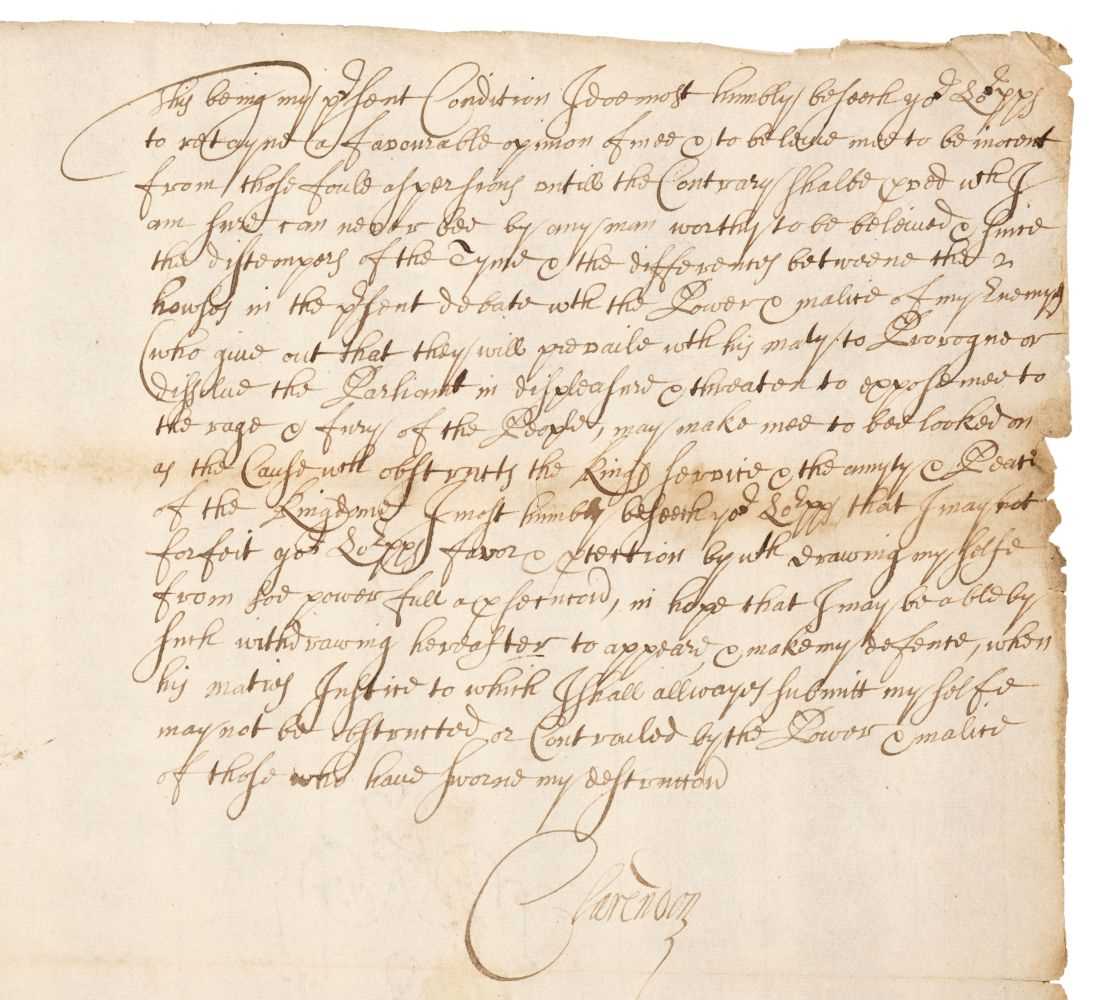 This being my p'sent Condition I doe most humbly beseech yor Lorpps
to retayne a favourable opinion of mee & to beleive mee to be inocent
from those foule aspersions untill the Contrary shalbe pved wch I
am sure can never bee by any man worthy to be beleived & since
the distempers of the Tyme & the differences betweene the 2
howses in the p'sent debate wth the Power & malice of my Enemys
(who give out that they will prevaile wth his maty to Prorogue or
dissolve the Parliamt in displeasure & threaten to expose mee to
the rage & fury of the People, may make mee to bee looked on
as the Cause wch obstructs the Kings service & the amyty & Peace
of the Kingdome I most humbly beseech yor Lorpps that I may not
forfeit yor Lorpps favor & ptection by wth drawing my selfe
from soe power full a psecucon, in hope that I may be able by
such withdrawing hereafter to appeare & make my defence, when
his maties Justice to which I shall allwayes submitt my selfe
may not be obstructed or Controuled by the Power & malice
of those who have sworne my destruccon
Clarendon